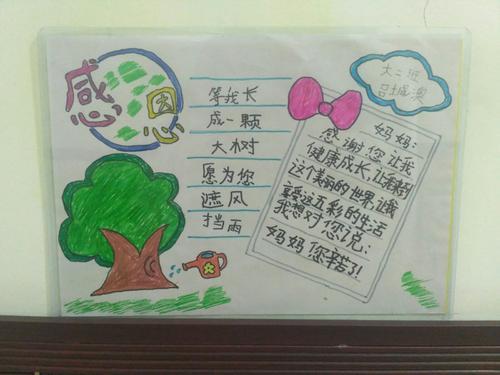 感恩
等我长
成一颗
大树
愿为您
遮风
挡雨
大二班
妈妈：
感谢您让我
健康成长，让我来到
这个美丽的世界，让我
享受这五彩的生活
我想对您说：
妈妈您辛苦了！